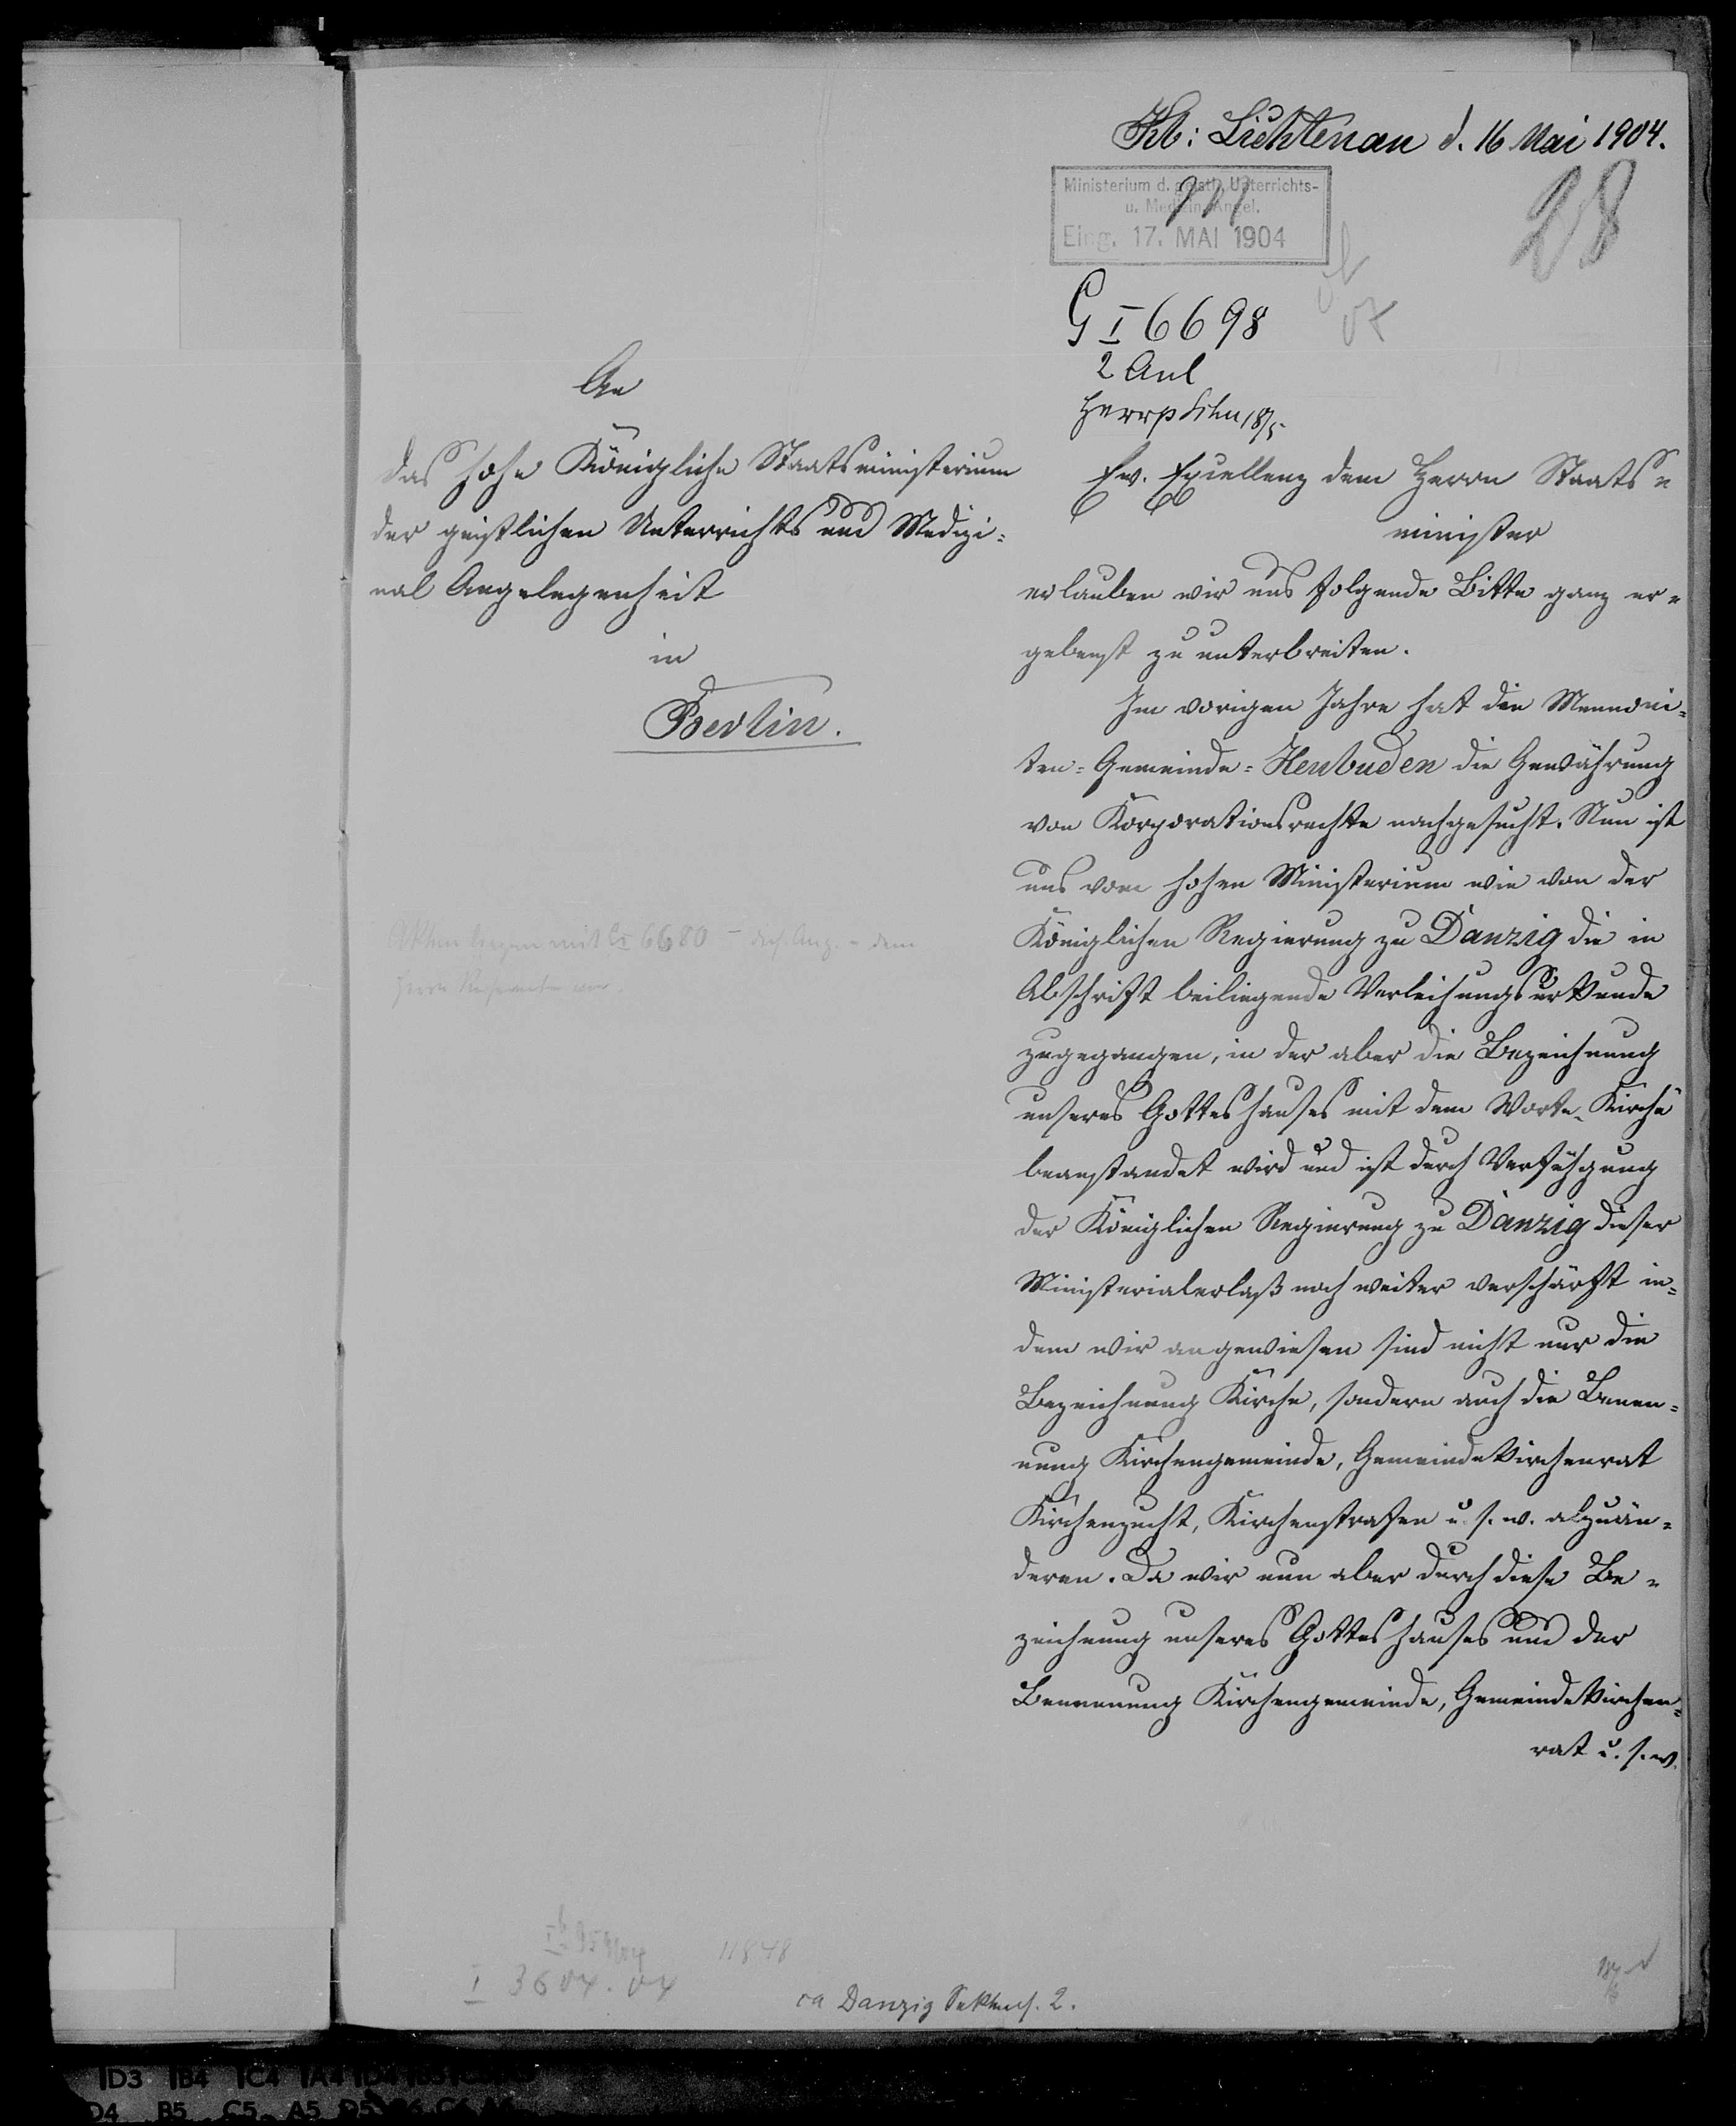 Kb: Lichtenau d. 16 Mai 1904.
Ministerium d. geistl. Unterrichts-
u. Medicin. Angel.
Eing. 17. MAI 1904
28
G I 6698
2 Anl
An
das hohe Königliche Staatsministerium
der geistlichen Unterrichts und Medizi=
nal Angelegenheit
in
Berlin.
Akten liegen mit GI 6680 - dem
Herrn
Ew. Excellenz dem Herrn Staats=
minister
erlauben wir uns folgende Bitte ganz er=
gebenst zu unterbreiten.
Im vorigen Jahre hat die Mennoni=
ten=Gemeinde=Heubuden die Gewährung
von Korporationsrechte nachgesucht. Nun ist
uns vom hohen Ministerium wie von der
Königlichen Regierung zu Danzig die in
Abschrift beiliegende Verleihungsurkunde
zugegangen, in der aber die Bezeichnung
unseres Gotteshauses mit dem Worte „Kirche“
beanstandet wird und ist durch Verfühgung
der Königlichen Regierung zu Danzig dieser
Ministerialerlaß noch weiter verschärft in=
dem wir angewiesen sind nicht nur die
Bezeichnung Kirche, sondern auch die Benen=
nung Kirchengemeinde, Gemeindekirchenrat
Kirchenzucht, Kirchenstrafen u. s. w. abzuän=
deren. Da wir nun aber durch diese Be=
zeichnung unseres Gotteshauses und der
Benennung Kirchengemeinde, Gemeindekirchen=
rat u. s. w.
11848
I 3604.04
ca Danzig 2.
D3 B4 C4 A4 D4
D4 B5 C5 A5 D5